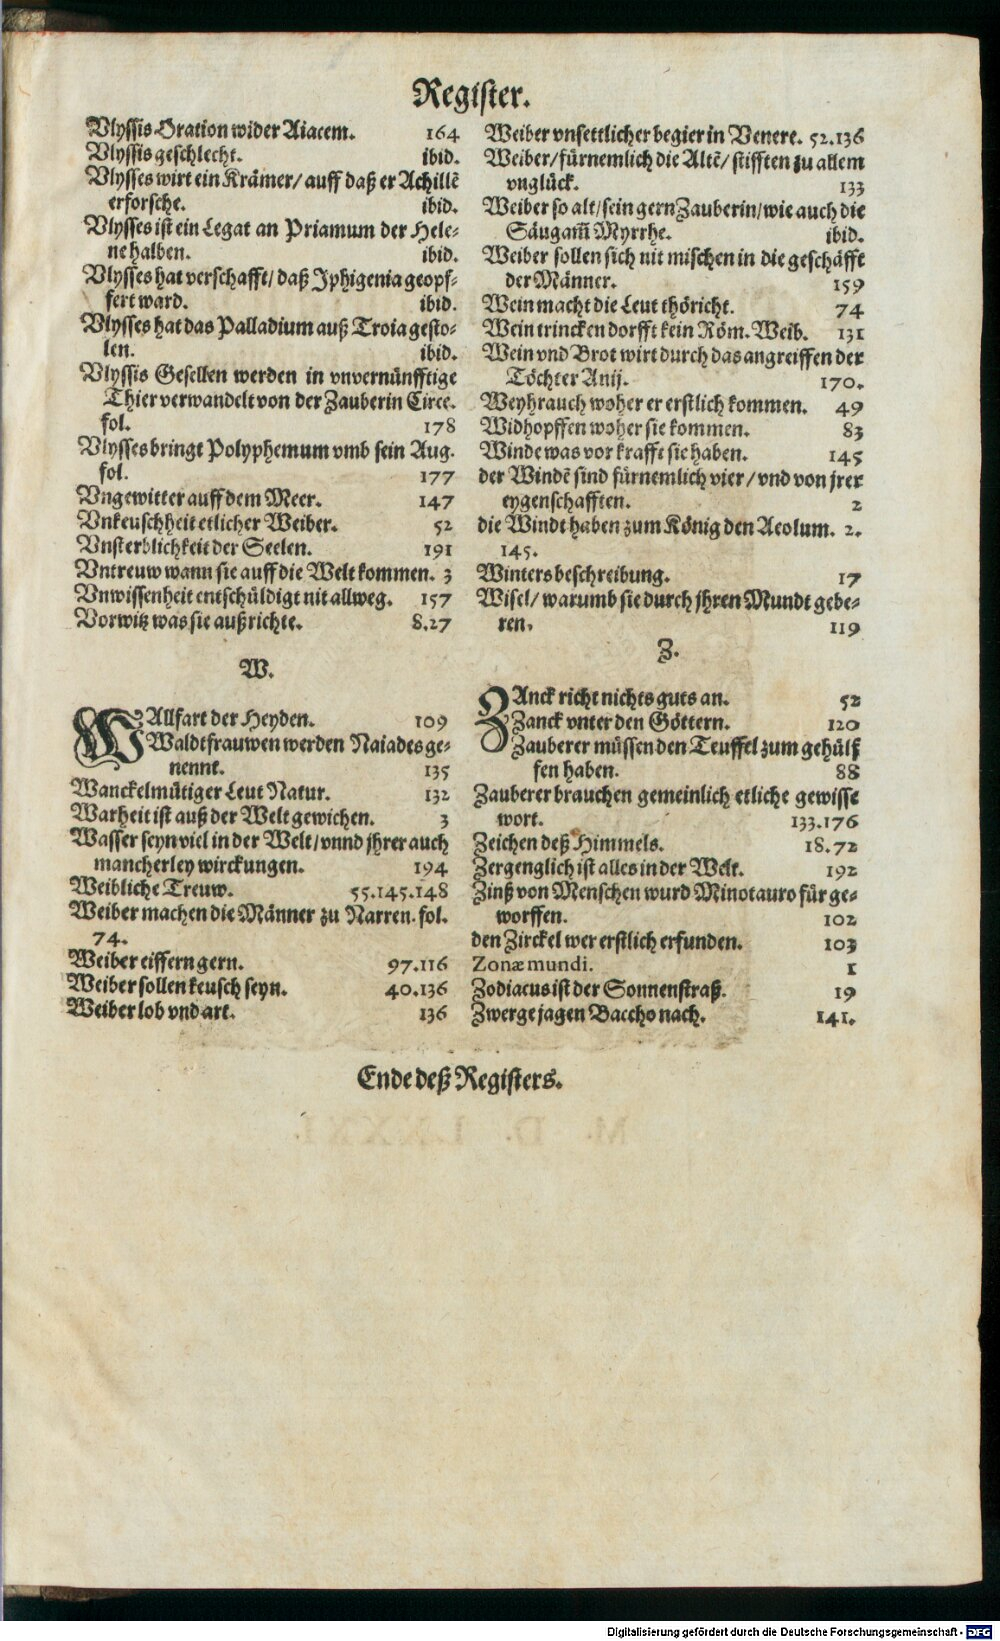 Register.
Vlyssis Oration wider Aiacem. 164
Vlyssis geschlecht. ibid.
Vlysses wirt ein Krämer/ auff daß er Achillẽ
erforsche. ibid.
Vlysses ist ein Legat an Priamum der Hele-
ne halben. ibid.
Vlysses hat verschafft/ daß Iphigenia geopf-
fert ward. ibid.
Vlysses hat das Palladium auß Troia gesto-
len. ibid.
Vlyssis Gesellen werden in vnvernünfftige
Thier verwandelt von der Zauberin Circe.
fol. 178
Vlysses bringt Polyphemum vmb sein Aug.
fol. 177
Vngewitter auff dem Meer. 147
Vnkeuschheit etlicher Weiber. 52
Vnsterblichkeit der Seelen. 191
Vntreuw wann sie auff die Welt kommen. 3
Vnwissenheit entschüldigt nit allweg. 157
Vorwitz was sie außrichte. 8.27
W.
WAllfart der Heyden. 109
Waldtfrauwen werden Naiades ge-
nennt. 135
Wanckelmütiger Leut Natur. 132
Warheit ist auß der Welt gewichen. 3
Wasser seyn viel in der Welt/ vnnd jhrer auch
mancherley wirckungen. 194
Weibliche Treuw. 55.145.148
Weiber machen die Männer zu Narren. fol.
74.
Weiber eiffern gern. 97.116
Weiber sollen keusch seyn. 40.136
Weiber lob vnd art. 136
Weiber vnsettlicher begier in Venere. 52.136
Weiber/ fürnemlich die Altẽ/ stifften zu allem
vnglück. 133
Weiber so alt/ sein gern Zauberin/ wie auch die
Säugam̃ Myrrhe. ibid.
Weiber sollen sich nit mischen in die geschäfft
der Männer. 159
Wein macht die Leut thöricht. 74
Wein trincken dorfft kein Röm. Weib. 131
Wein vnd Brot wirt durch das angreiffen der
Töchter Anij. 170.
Weyhrauch woher er erstlich kommen. 49
Widhopffen woher sie kommen. 83
Winde was vor krafft sie haben. 145
der Windẽ sind fürnemlich vier/ vnd von jrer
eygenschafften. 2
die Windt haben zum König den Aeolum. 2.
145.
Winters beschreibung. 17
Wisel/ warumb sie durch jhren Mundt gebe-
ren. 119
Z.
ZAnck richt nichts guts an. 52
Zanck vnter den Göttern. 120
Zauberer müssen den Teuffel zum gehülf
fen haben. 88
Zauberer brauchen gemeinlich etliche gewisse
wort. 133.176
Zeichen deß Himmels. 18.72
Zergenglich ist alles in der Welt. 192
Zinß von Menschen wurd Minotauro für ge-
worffen. 102
den Zirckel wer erstlich erfunden. 103
Zonæ mundi. 1
Zodiacus ist der Sonnenstraß. 19
Zwerge jagen Baccho nach. 141.
Ende deß Registers.
M. D. LXXXI.
Digitalisierung gefördert durch die Deutsche Forschungsgemeinschaft - DFG